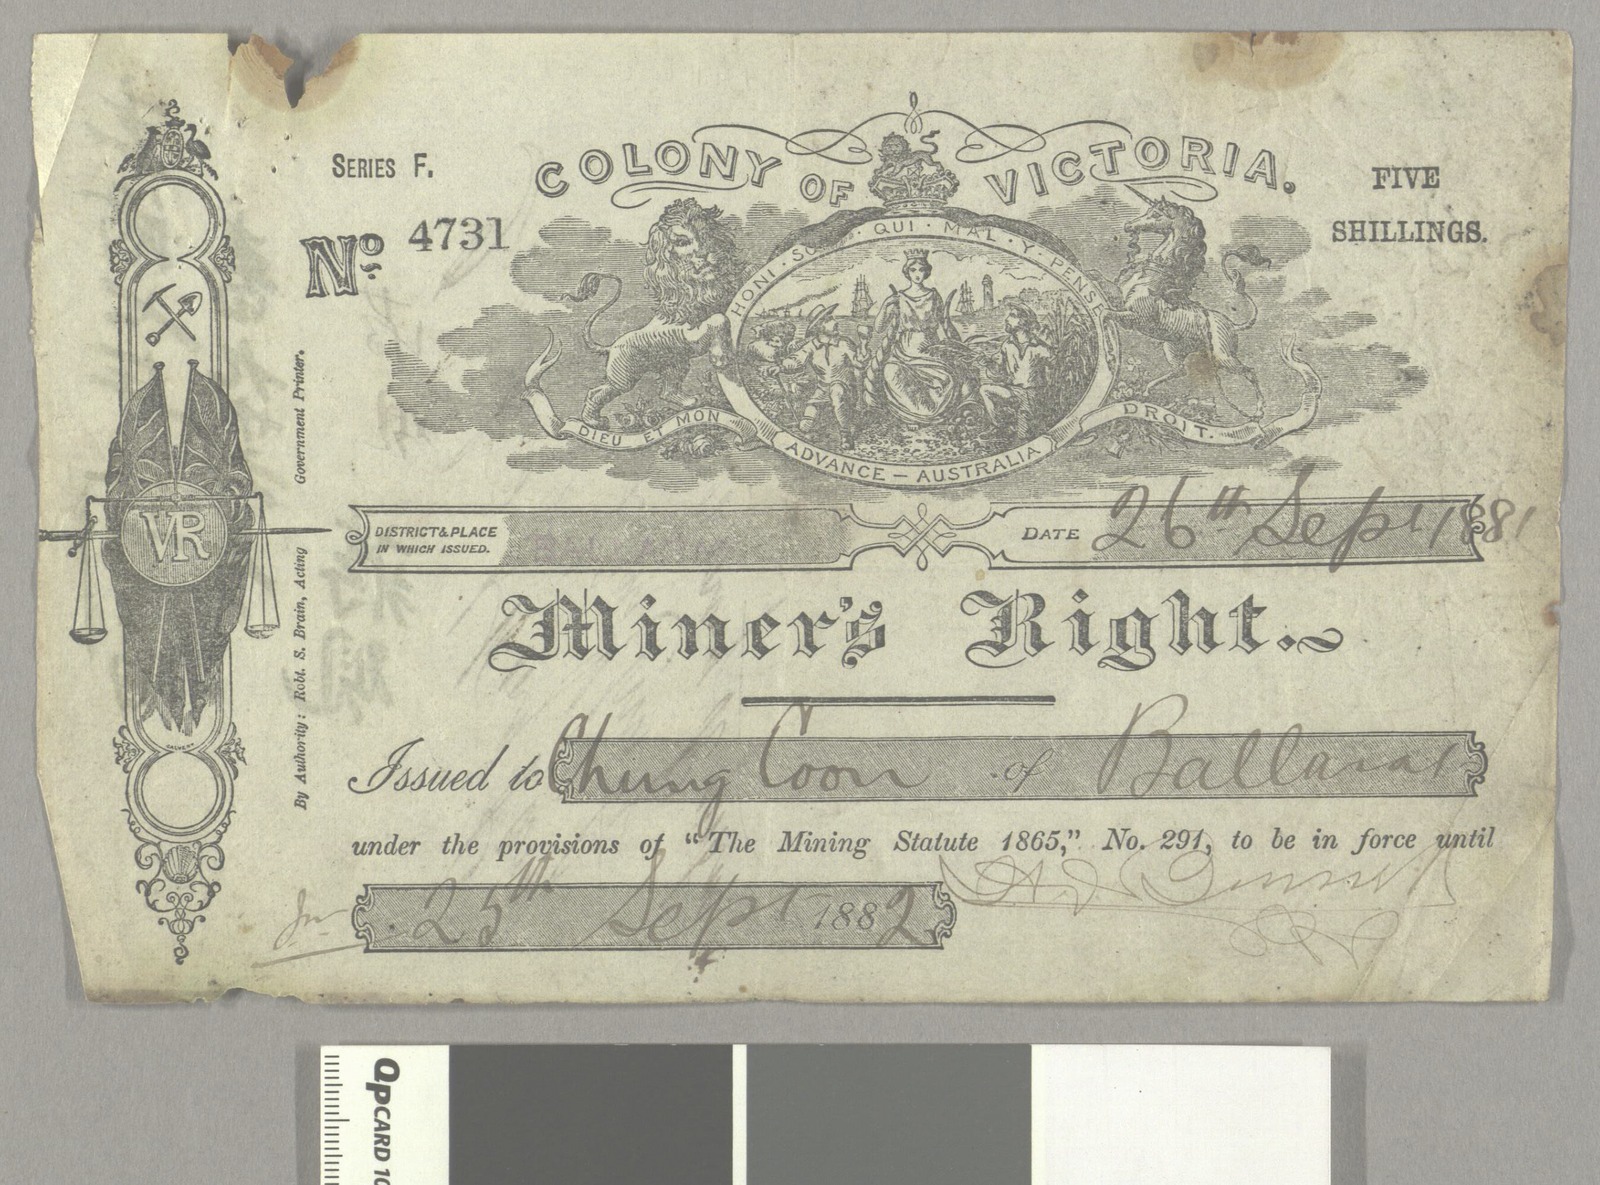 COLONY OF VICTORIA.
SERIES F.
No. 4731
FIVE
SHILLINGS.
HONI · SOIT · QUI · MAL · Y · PENSE
DIEU ET MON DROIT.
ADVANCE — AUSTRALIA
VR
By Authority: Robt. S. Brain, Acting Government Printer.
DISTRICT & PLACE
IN WHICH ISSUED.
DATE 26th Sept 1881
Miner's Right.
Issued to Chung Coon of Ballarat
under the provisions of "The Mining Statute 1865," No. 291, to be in force until
25th Sept 1882
QPCARD